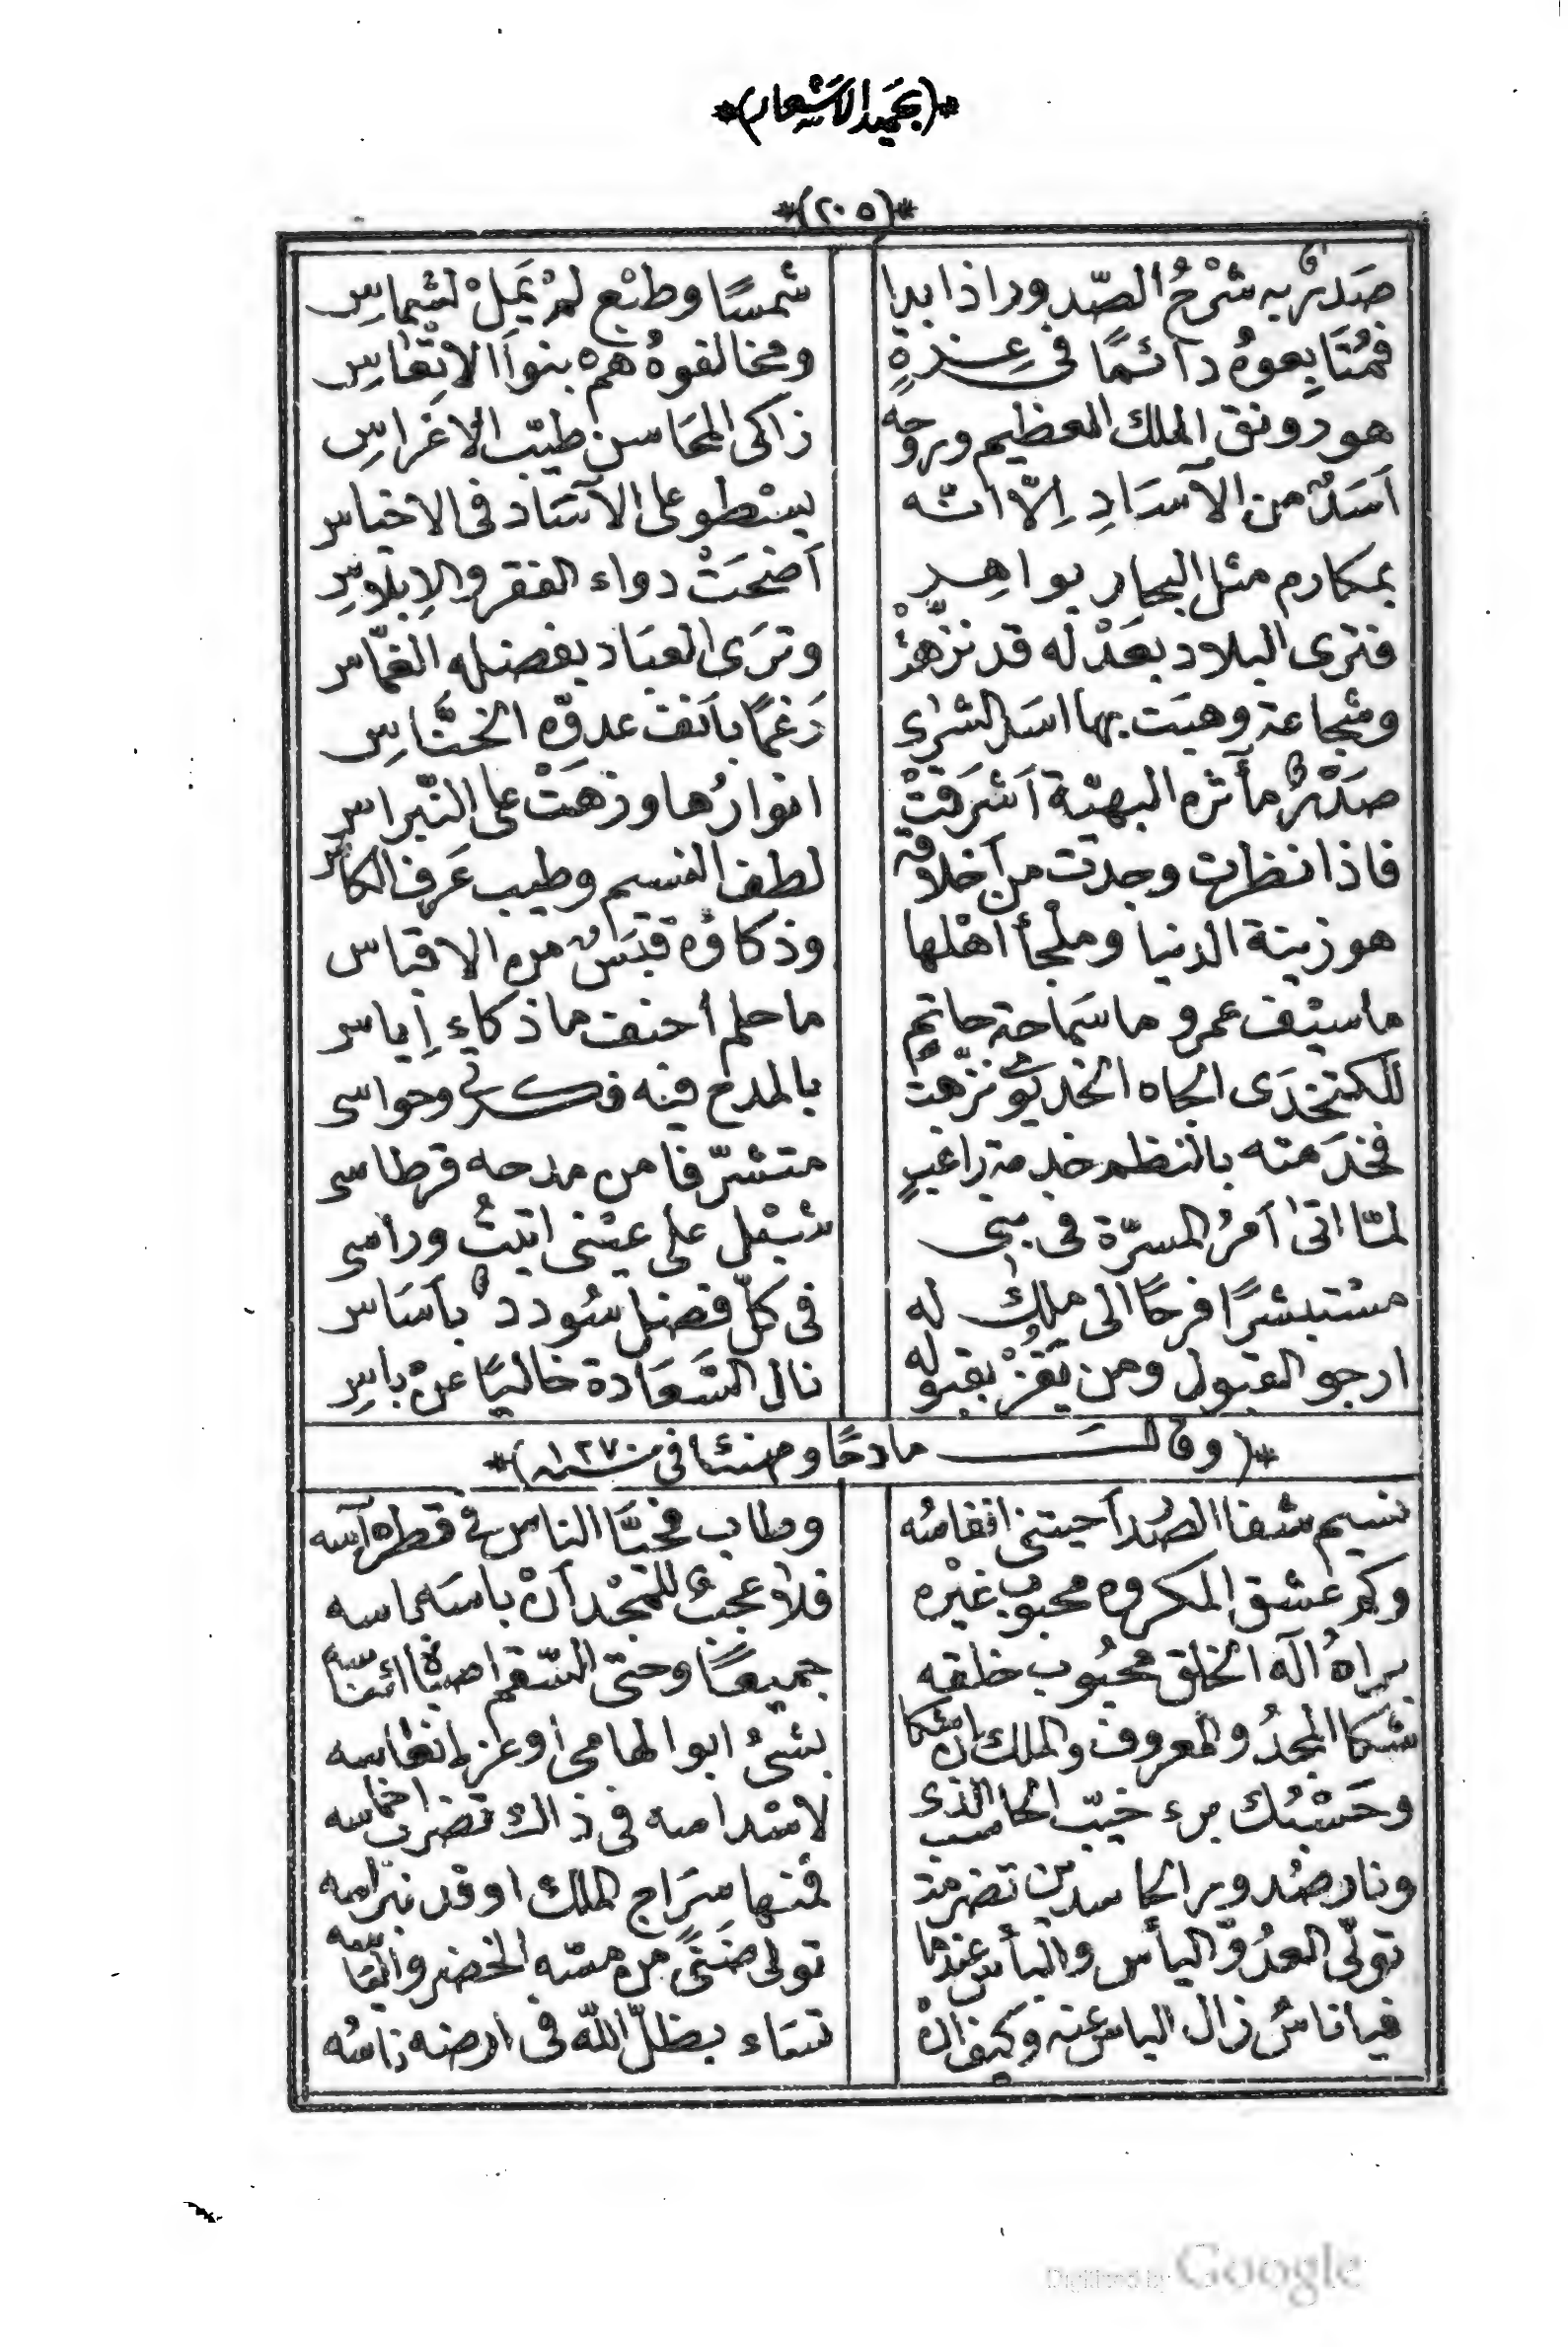 *(بحميد الاشعار)*
*(٢٠٥)*
صَدرٌ به شَرْحُ الصّدور اذا بدا شمسًا وطبْع لمْ يَمِلْ لشِماسِ
فمُتَابِعوهُ دآئمًا فى عِزةٍ ومخالفوهُ همُ بنوا الاتْعَاسِ
هو رونق الملك العظيم وروحه زاكى المحَاسن طيّب الاغراسِ
اَسَدٌ من الآسَادِ اِلاّ انّه يسْطو على الآسَاد فى الاخياس
بمكارم مثل البحار بواهِر اَضحَتْ دواء الفقر والاِبْلاسِ
فترى البلاد بعَدْله قد نزّهتْ وترَى العبَاد بفضله الغمّاس
وشجاعة وهبَت بها اسَد الشرٰى رَغمًا بانف عدوّه الخنَّاسِ
صَدْرٌ مآثره البهيّة اَشرَقتْ انوارُها وزهَتْ على النّبراس
فاذا نظرت وجدت من اَخلاقه لطف النسيم وطيب عَرف الكاس
هو زينة الدنيا وملجأ اهْلها وذكاؤه قبَسٌ من الاقباس
ما سيْف عمرو ما سَماحة حاتِم ما حلم أحنف ما ذكاءِ إياس
للكتخدَى الجاه الخديوىّ نزّهت بالمدح فيه فكرتى وحواسى
فخدَمته بالنظم خدمة راغبٍ متشرّفا من مدحه قرطاسى
لمّا اتى اَمرُ المسرّة فى سُبُل على عيْنى اتيتُ وراسى
مستبشرًا فرحًا الى ملِك له فى كلّ فضل سُودد بأسَاس
ارجو القبول ومن يَفُزْ بقبوله نال السَّعَادة خاليًا عنْ باسِ
*(وقالَ مادحًا ومهنئا فى سنة ١٢٧٠)*
نسيم شفا الصّدر احيتنى انفاسُه وطاب محيَّا الناس فى قطره آسه
وكم عشق المكروه محبوب غيْره فلا عجبٌ للمجْد اَنْ باسَه ماسه
براهُ اله الخلق محبُوب خلقه جميعًا وحتى السّقم
شكا المجدُ والمعروف والملك ان شكا بشىُ ابو الهامى أو عز انعاسه
وحَسْبُك برء خيّب الحاسب الذى لاسْدامه فى ذاك تضرب اخماسه
ونار صُدور الحاسدين تضرمت فمنها سِرَاج الملك اوقد نبراسه
تولّى العدُوّ اليأس والبأس عندما تولى ضنًى من مسّه الخضر والياسه
فيا ناسُ زال الباس عنه وكيف انْ تسَاء بظلّ اللّه فى ارضه ناسُه